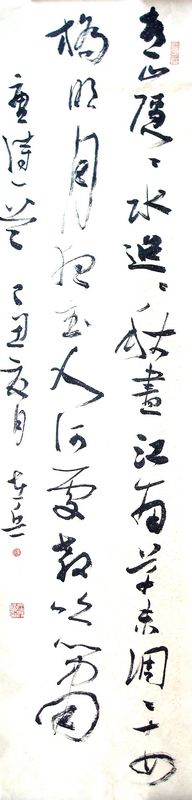 青山隱〻水迢〻秋盡江南草未凋二十四
橋明月夜玉人何處教吹簫
唐詩一首 己丑夏月